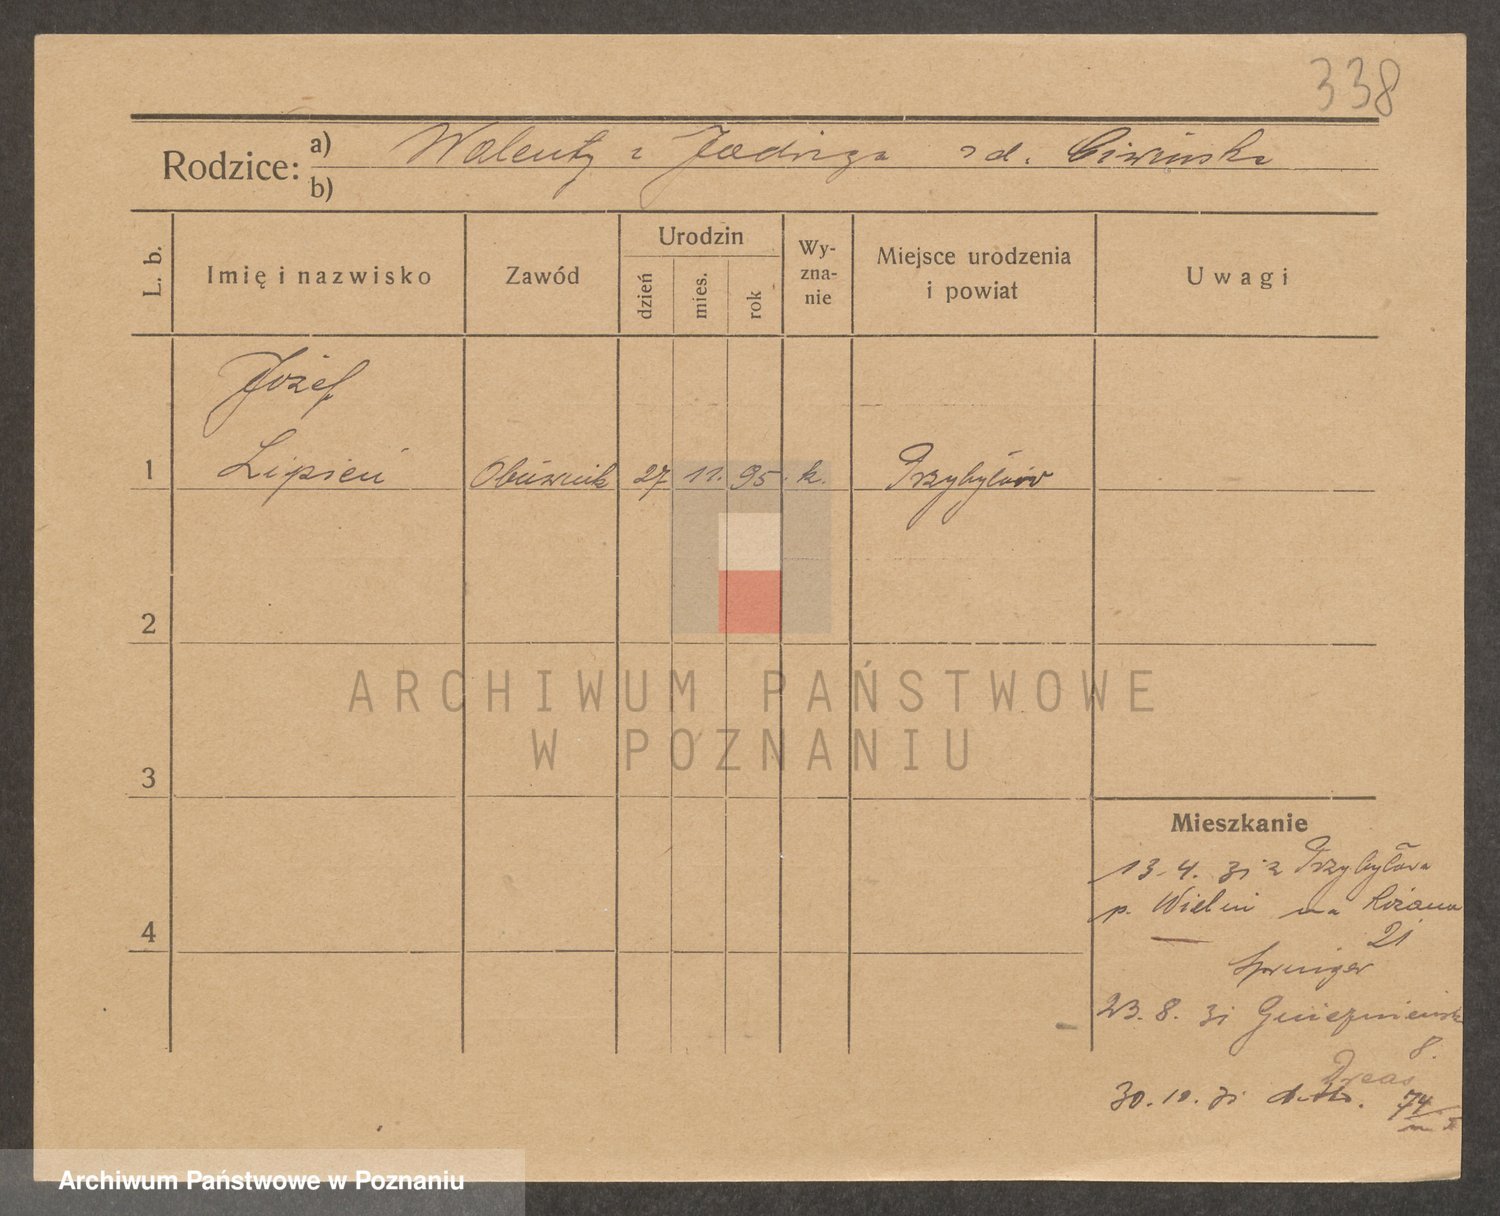 338
Rodzice: a) Walenty i Jadwiga z d. Ciwińska
b)
L. b.
Imię i nazwisko
Zawód
Urodzin
dzień
mies.
rok
Wy-
zna-
nie
Miejsce urodzenia
i powiat
Uwagi
Józef
1 Lipień Obuwnik 27 11. 95. k. Przybyłów
2
3
4
Mieszkanie
13. 4. 31 z Przybyłowa
p. Wieluń na Różana
21
Sprenger
23. 8. 31 Gnieźnieńsk
8.
Dreas
30. 10. 31 dtto. 74
ARCHIWUM PAŃSTWOWE
W POZNANIU
Archiwum Państwowe w Poznaniu